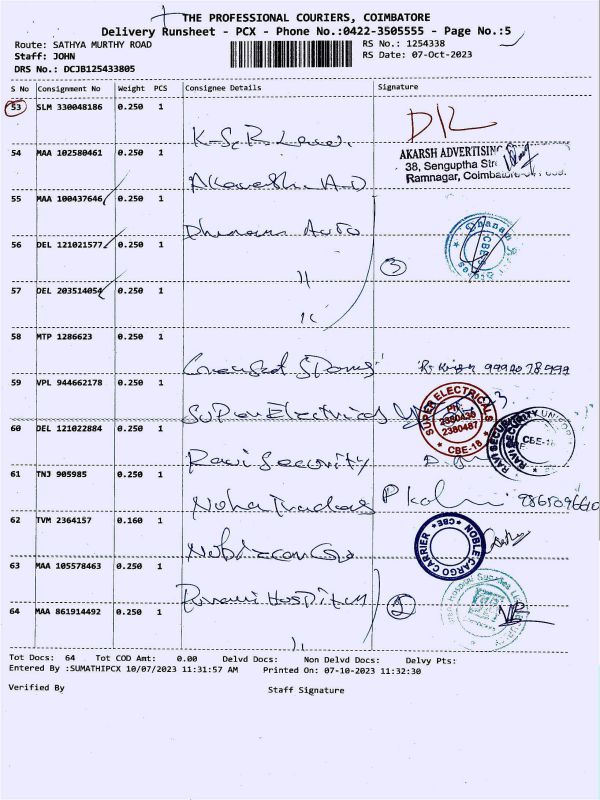 THE PROFESSIONAL COURIERS, COIMBATORE
Delivery Runsheet - PCX - Phone No.:0422-3505555 - Page No.:5
Route: SATHYA MURTHY ROAD
RS No.: 1254338
Staff: JOHN
RS Date: 07-Oct-2023
DRS No.: DCJB125433805
S No Consignment No Weight PCS Consignee Details Signature
53 SLM 330048186 0.250 1
54 MAA 102580461 0.250 1
AKARSH ADVERTISING
38, Senguptha Str
Ramnagar, Coimbatore
55 MAA 100437646 0.250 1
Dhanam Auto
56 DEL 121021577 0.250 1
"
3
57 DEL 203514054 0.250 1
"
58 MTP 1286623 0.250 1
59 VPL 944662178 0.250 1
Super Electricals
SUPER ELECTRICALS
PH
2380436
2380487
CBE-18
60 DEL 121022884 0.250 1
Ravi Security
RAVI SECURITY
CBE-18
61 TNJ 905985 0.250 1
Noha Traders
62 TVM 2364157 0.160 1
NOBLE CARGO CARRIER
CBE
63 MAA 105578463 0.250 1
Hospital
2
64 MAA 861914492 0.250 1
"
Tot Docs: 64 Tot COD Amt: 0.00 Delvd Docs: Non Delvd Docs: Delvy Pts:
Entered By :SUMATHIPCX 10/07/2023 11:31:57 AM Printed On: 07-10-2023 11:32:30
Verified By Staff Signature